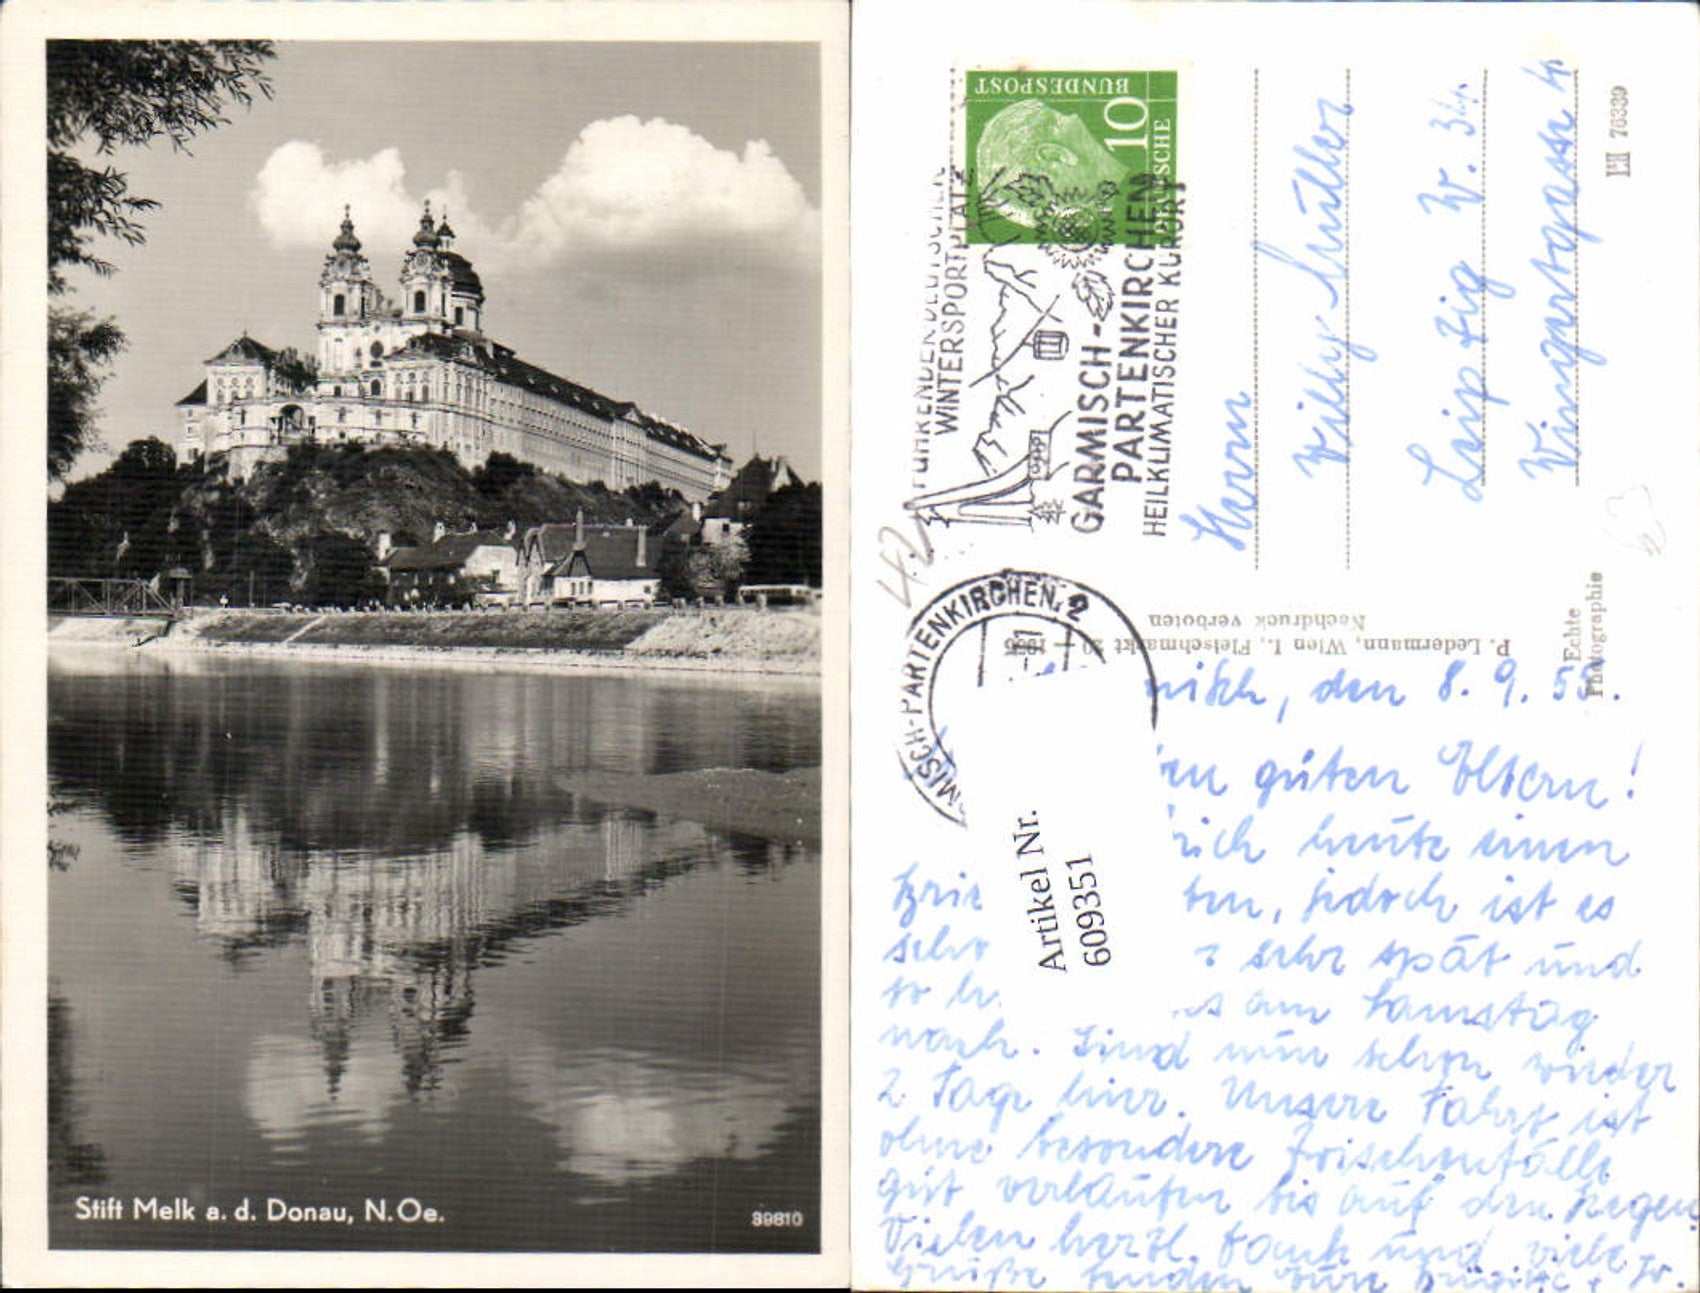 Stift Melk a. d. Donau, N. Oe.
39810
DEUTSCHE
BUNDESPOST
10
FÜHRENDER DEUTSCHER
WINTERSPORTPLATZ
GARMISCH-
PARTENKIRCHEN
HEILKLIMATISCHER KURORT
MISCH-PARTENKIRCHEN 2
42
Herrn
Willy Müller
Leipzig W. 34.
Weingartgasse 4
LH 70339
P. Ledermann, Wien I., Fleischmarkt 20
Nachdruck verboten
Echte
Photographie
Artikel Nr.
609351
misch, den 8. 9. 55.
en guten Eltern!
ich heute einen
Brie ten, jedoch ist es
scho sehr spät und
so h es am Samstag
nach. Sind nun schon wieder
2 Tage hier. Unsere Fahrt ist
ohne besondere Zwischenfälle
gut verlaufen bis auf den Regen
Vielen herzl. Dank und viele
Grüße senden Eure